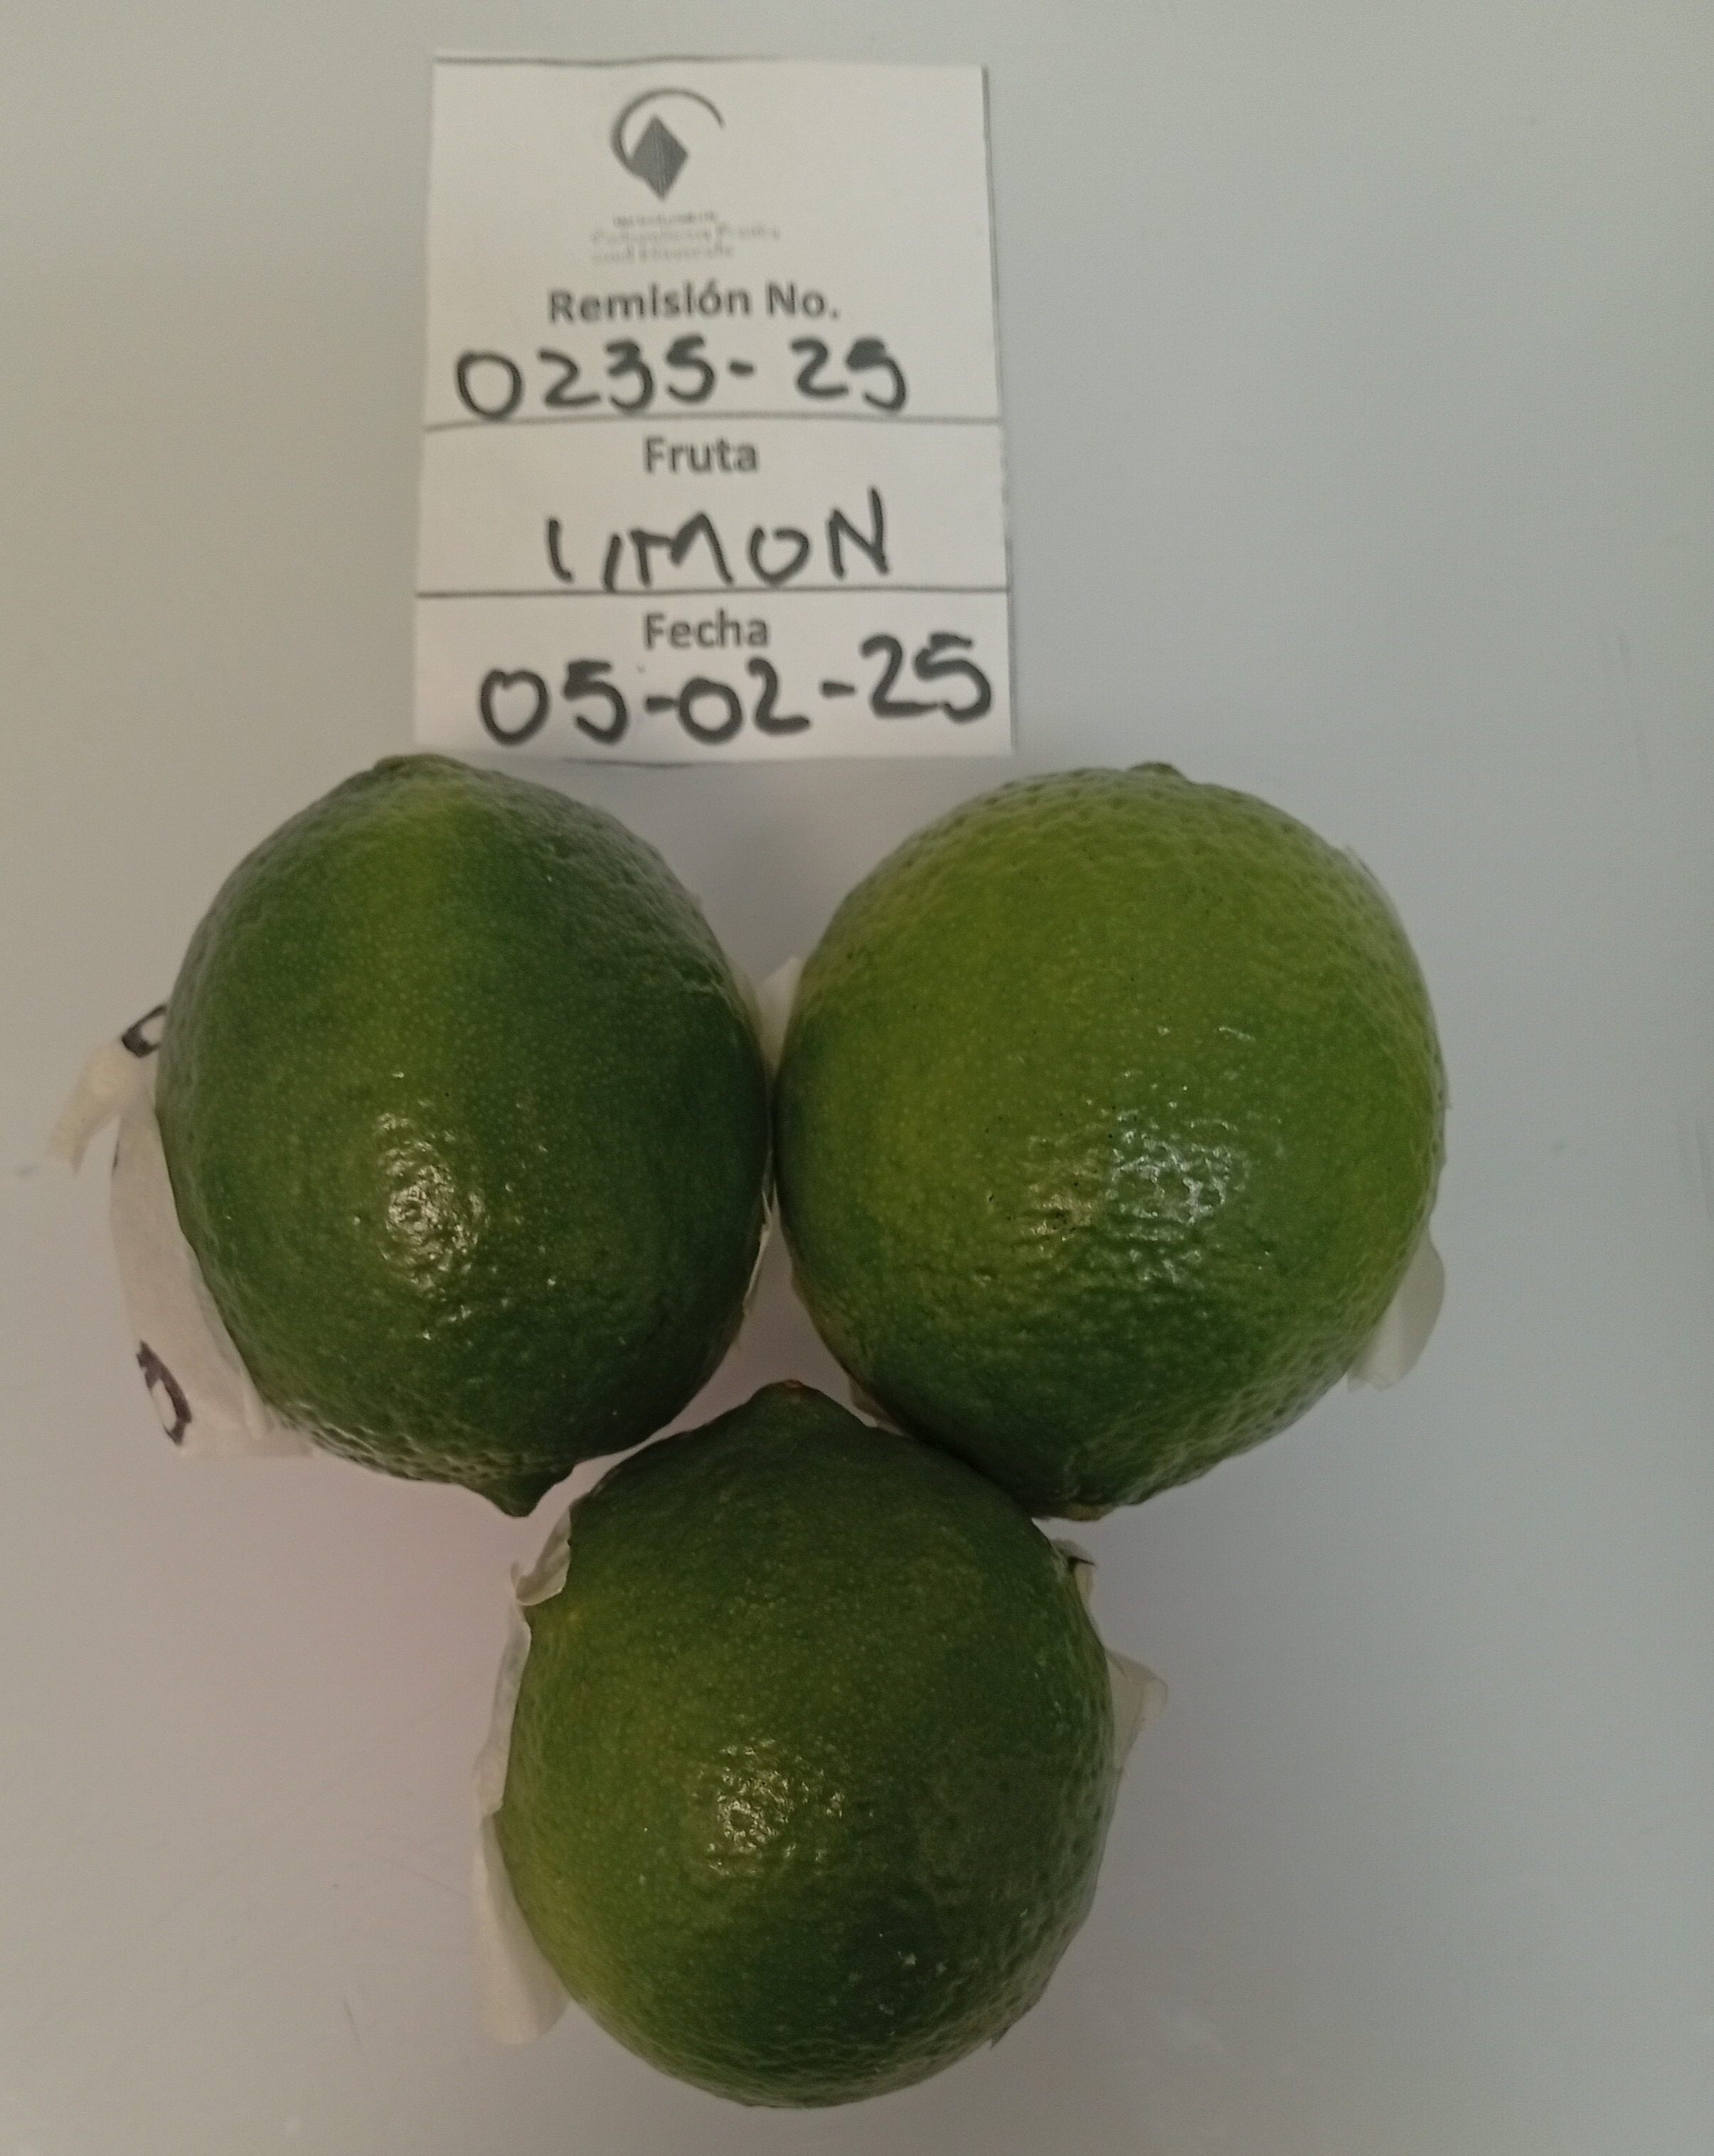 Remisión No.
0235-25
Fruta
LIMON
Fecha
05-02-25